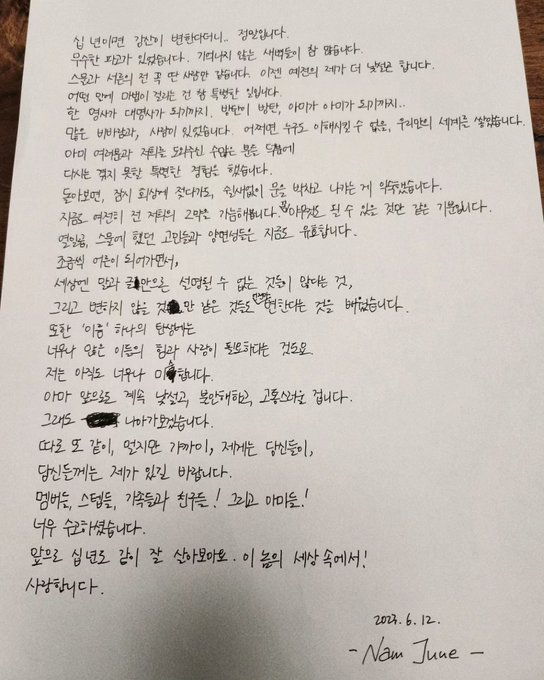 십 년이면 강산이 변한다더니.. 정말입니다.
무수한 파고가 있었습니다. 기억나지 않는 새벽들이 참 많습니다.
스물과 서른의 전 꼭 딴 사람만 같습니다. 이젠 예전의 제가 더 낯설곤 합니다.
어떤 말에 마법이 걸리는 건 참 특별한 일입니다.
한 명사가 대명사가 되기까지. 방탄이 방탄, 아미가 아미가 되기까지..
많은 비바람과, 사랑이 있었습니다. 어쩌면 누구도 이해시킬 수 없을, 우리만의 세계를 쌓았습니다.
아미 여러분과 저희를 도와주신 수많은 분들 덕분에
다시는 겪지 못할 특별한 경험을 했습니다.
돌아보면, 잠시 회상에 젖다가도, 쉴새없이 문을 박차고 나가는 게 익숙했습니다.
지금도 여전히 전 저희의 2막을 가늠해봅니다. 꼭 아무것도 될 수 있을 것만 같은 기분입니다.
열일곱, 스물에 했던 고민들과 양면성들은 지금도 유효합니다.
조금씩 어른이 되어가면서,
세상엔 말과 글만으론 설명될 수 없는 것들이 많다는 것,
그리고 변하지 않을 것만 같은 것들도 만만찮게 변한다는 것을 배웠습니다.
또한 '이름' 하나의 탄생에는
너무나 많은 이들의 힘과 사랑이 필요하다는 것도요.
저는 아직도 너무나 미숙합니다.
아마 앞으로도 계속 낯설고, 불안해하고, 고통스러울 겁니다.
그래도 나아가보겠습니다.
따로 또 같이, 멀지만 가까이, 제게는 당신들이,
당신들께는 제가 있길 바랍니다.
멤버들, 스텝들, 가족들과 친구들! 그리고 아미들!
너무 수고하셨습니다.
앞으로 십 년도 같이 잘 살아보아요. 이 놈의 세상 속에서!
사랑합니다.
2023. 6. 12.
- Nam June -